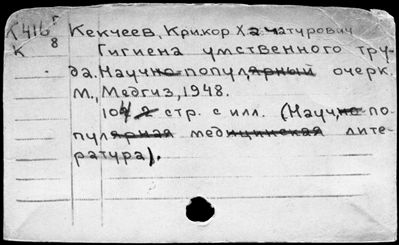 К416г Кекчеев, Крикор Хачатурович
К 8 Гигиена умственного тру-
да. Научно-популярный очерк.
М., Медгиз, 1948.
104 стр. с илл. (Научно-по-
пулярная медицинская лите-
ратура).